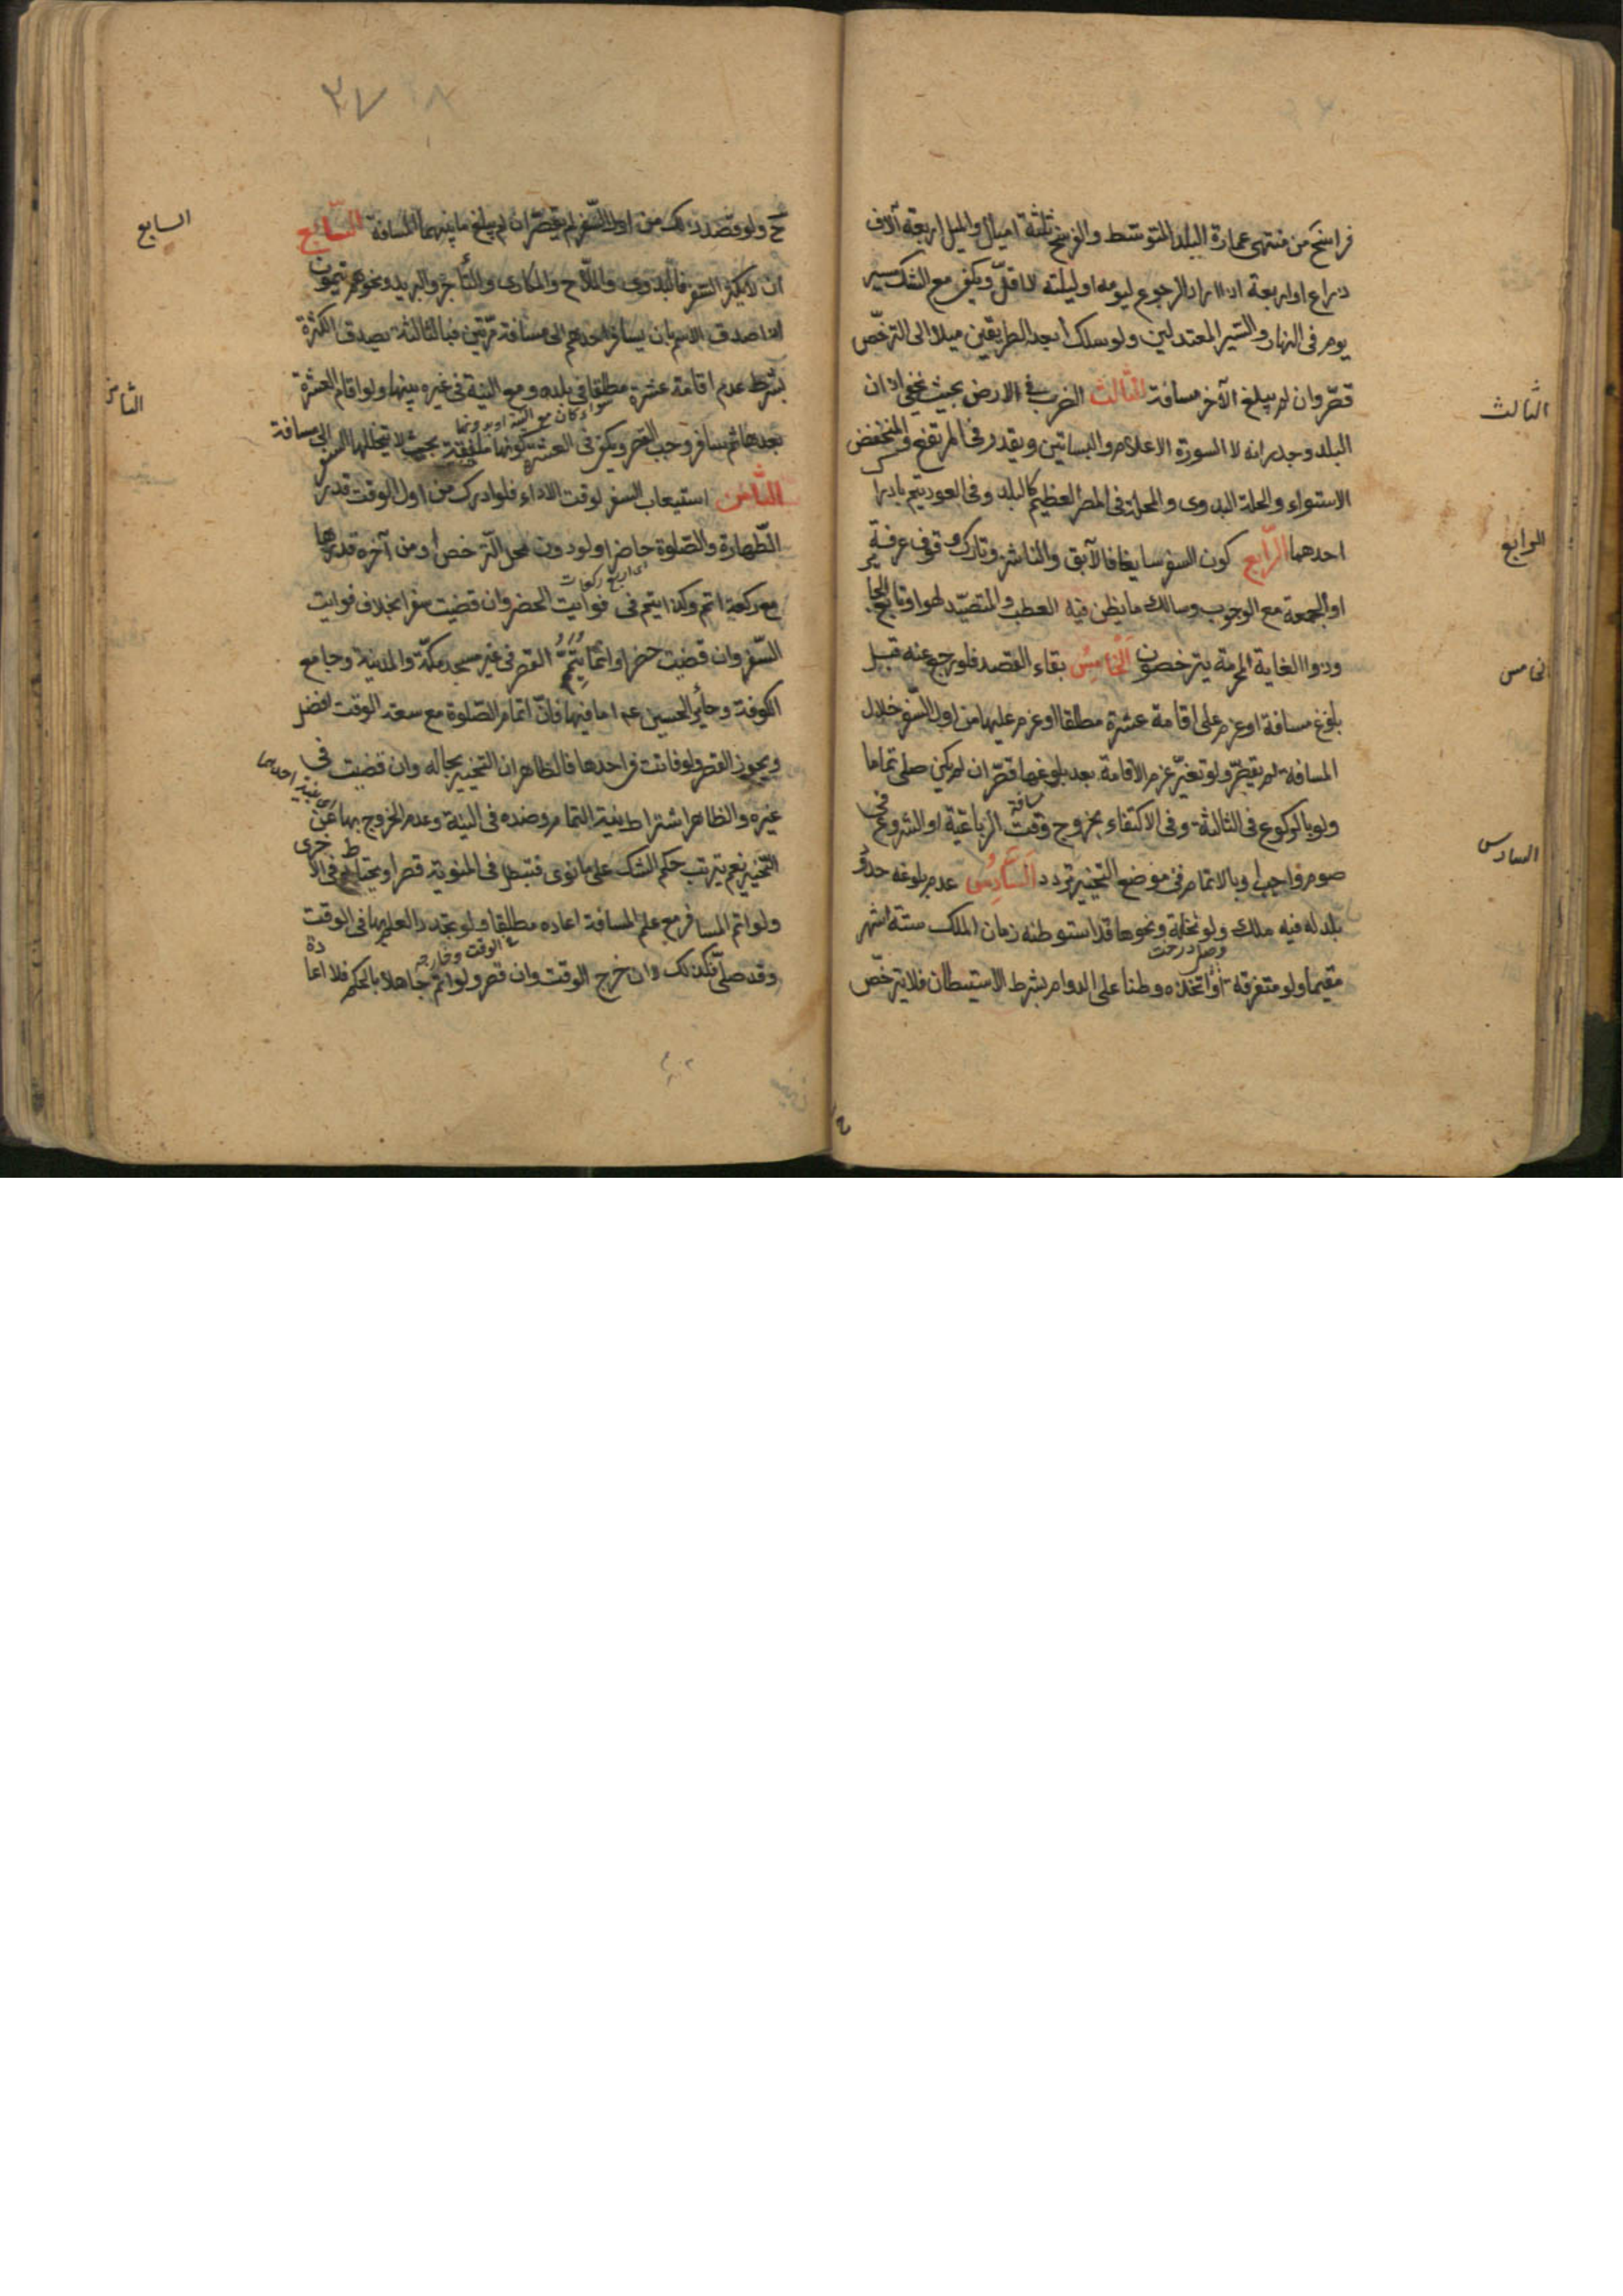 فراسخ من منتهى عمارة البلد المتوسط والفرسخ ثلثة اميال والميل اربعة آلاف
ذراع او اربعة اذا اراد الرجوع ليومه او ليلته لا اقل ويكفى مع الشك مسير
يوم فى النهار والسير المعتدلين ولو سلك ابعد الطريقين ميلا الى الترخّص
قصّر وان لم يبلغ الآخر مسافة الثالث الضرب فى الارض بحيث يخفى اذان
البلد وجدرانه لا السور والاعلام والبساتين ويقدر فى المرتفع والمنخفض
الاستواء والحلة للبدوى والمحلة فى المصر العظيم كالبلد وفى العود يتم بادراك
احدهما الرابع كون السفر سايغا فالآبق والناشز وتارك وقوف عرفة
او الجمعة مع الوجوب وسالك ما يظن فيه العطب والمتصيّد لهوا وتابع الجا
وذوا الغاية المحرمة يترخصون الخامس بقاء القصد فلو رجع عنه قبل
بلوغ مسافة او عزم على اقامة عشرة مطلقا او عزم عليها من اول السفر خلال
المسافة لم يقصّر ولو تغيّر عزم الاقامة بعد بلوغها قصّر ان لم يكن صلى تماما
ولو بالركوع فى الثالثة وفى الاكتفاء بخروج وقت الرباعية او الشروع فى
صوم واجب او بالاتمام فى موضع التخيير تردد السادس عدم بلوغه حدود
بلد له فيه ملك ولو نخلة ونحوها قد استوطنه زمان الملك ستة اشهر
مقيما ولو متفرقة او اتخذه وطنا على الدوام بشرط الاستيطان فلا يترخّص
الثالث
الرابع
الخامس
السادس
٣٧
ح ولو قصد ذلك من اول السفر لم يقصّر ان لم يبلغ ما بينهما المسافة السابع
ان لا يكثر السفر فالبدوى والملّاح والمكارى والتاجر والبريد ونحوهم يتمون
اذا صدق الاسم بان يسافر احدهم الى مسافة مرّتين فبالثالثة يصدق الكثرة
بشرط عدم اقامة عشرة مطلقا فى بلده ومع النية فى غيره بينها ولو اقام العشرة
بعدها ثم سافر وجب القصر ويكفى فى العشرة كونها ملفقة بحيث لا يتخللها السفر الى مسافة
الثامن استيعاب السفر لوقت الاداء فلو ادرك من اول الوقت قدر
الطّهارة والصّلوة حاضرا ولو دون محل الترخص او من آخره قدرها
مع ركعة اتم وكذا يتم فى فوايت الحضر وان قضيت سفرا بخلاف فوايت
اى اربع ركعات
السّفر وان قضيت حضرا وانما يتمّ القصر فى غير مسجد مكّة والمدينة وجامع
الكوفة وحاير الحسين عم اما فيها فانّ اتمام الصّلوة مع سعة الوقت افضل
ويجوز القصر ولو فاتت فى احدها فالظاهر ان التخيير بحاله وان قضيت فى
غيره والظاهر اشتراط نية التمام وضده فى النية وعدم الخروج بها عن
التخيير نعم يترتب حكم الشك على ما نوى فتبطل فى المنوية قصرا ويحتاط فى الاخرى
ولو اتم المسافر مع علم المسافة اعاده مطلقا ولو تجدد العلم بها فى الوقت
وقد صلّى فكذلك وان خرج الوقت وان قصر ولو اتم جاهلا بالحكم فلا اعادة
الوقت وخارجه
السابع
الثامن